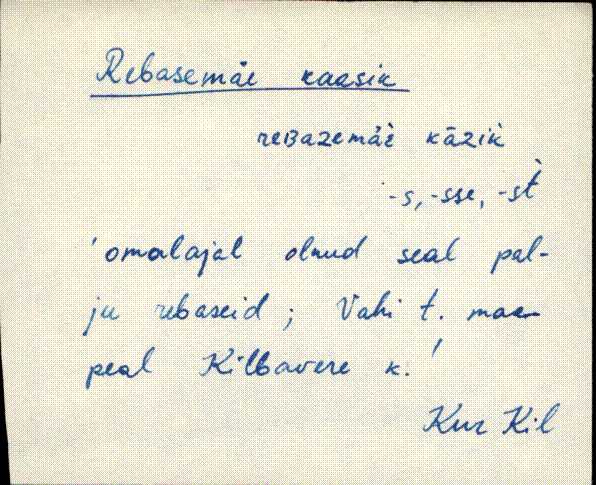 Rebasemäe kaasik
reʙazemäè kāzik̀
-s, -sse, -st̀
'omalajal olnud seal pal-
ju rebaseid; Vahi t. maa
peal Kilbavere k.'
Kur Kil